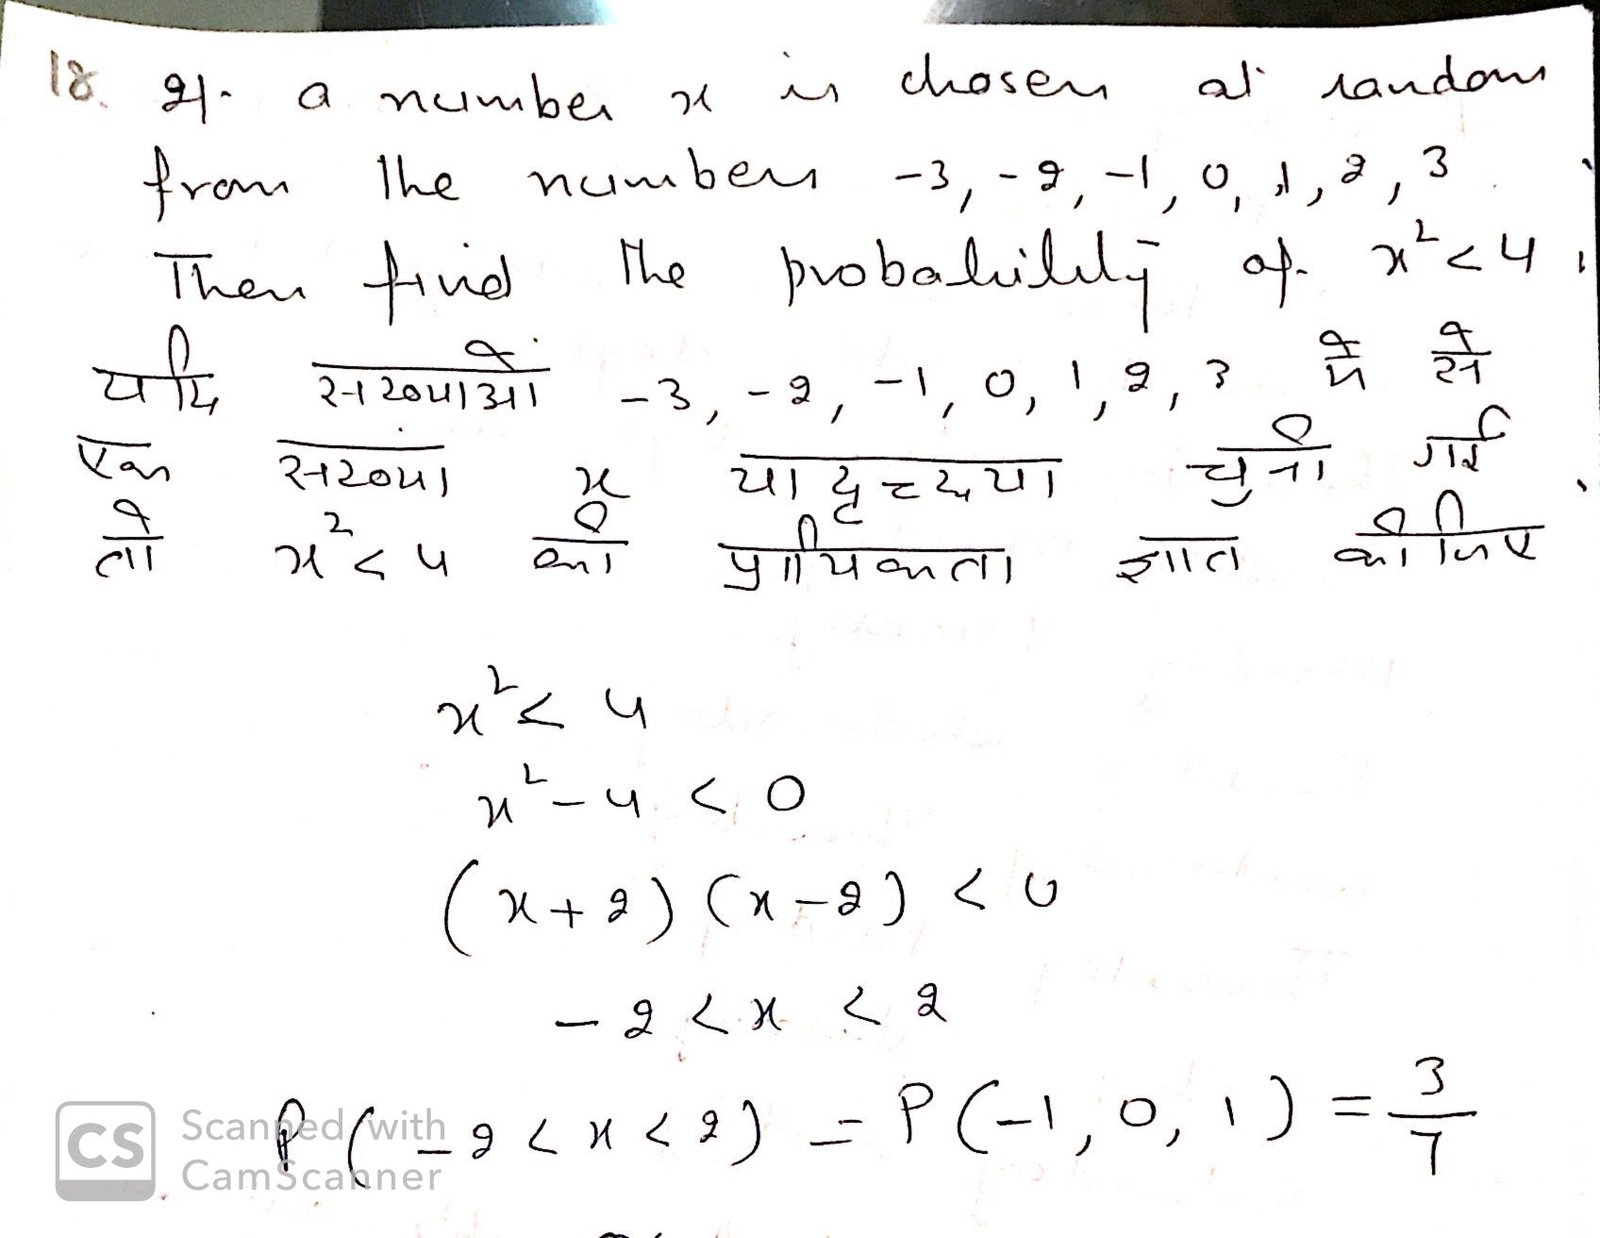 18. If a number x is chosen at random
from the numbers -3, -2, -1, 0, 1, 2, 3.
Then find the probability of x² < 4.
यदि संख्याओं -3, -2, -1, 0, 1, 2, 3 में से
एक संख्या x यादृच्छया चुनी गई
तो x² < 4 की प्रायिकता ज्ञात कीजिए
x² < 4
x² - 4 < 0
(x+2) (x-2) < 0
-2 < x < 2
P(-2 < x < 2) = P(-1, 0, 1) = 3/7
CS Scanned with
CamScanner